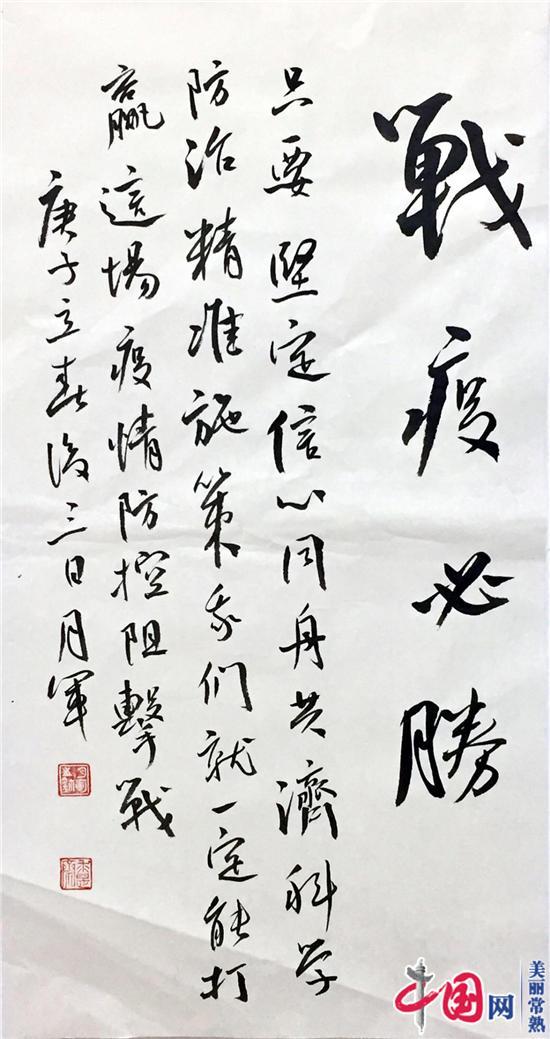 戰疫必勝
只要堅定信心同舟共濟科学
防治精准施策我们就一定能打
赢這場疫情防控阻擊戰
庚子立春後三日月軍
中国网
美丽常熟